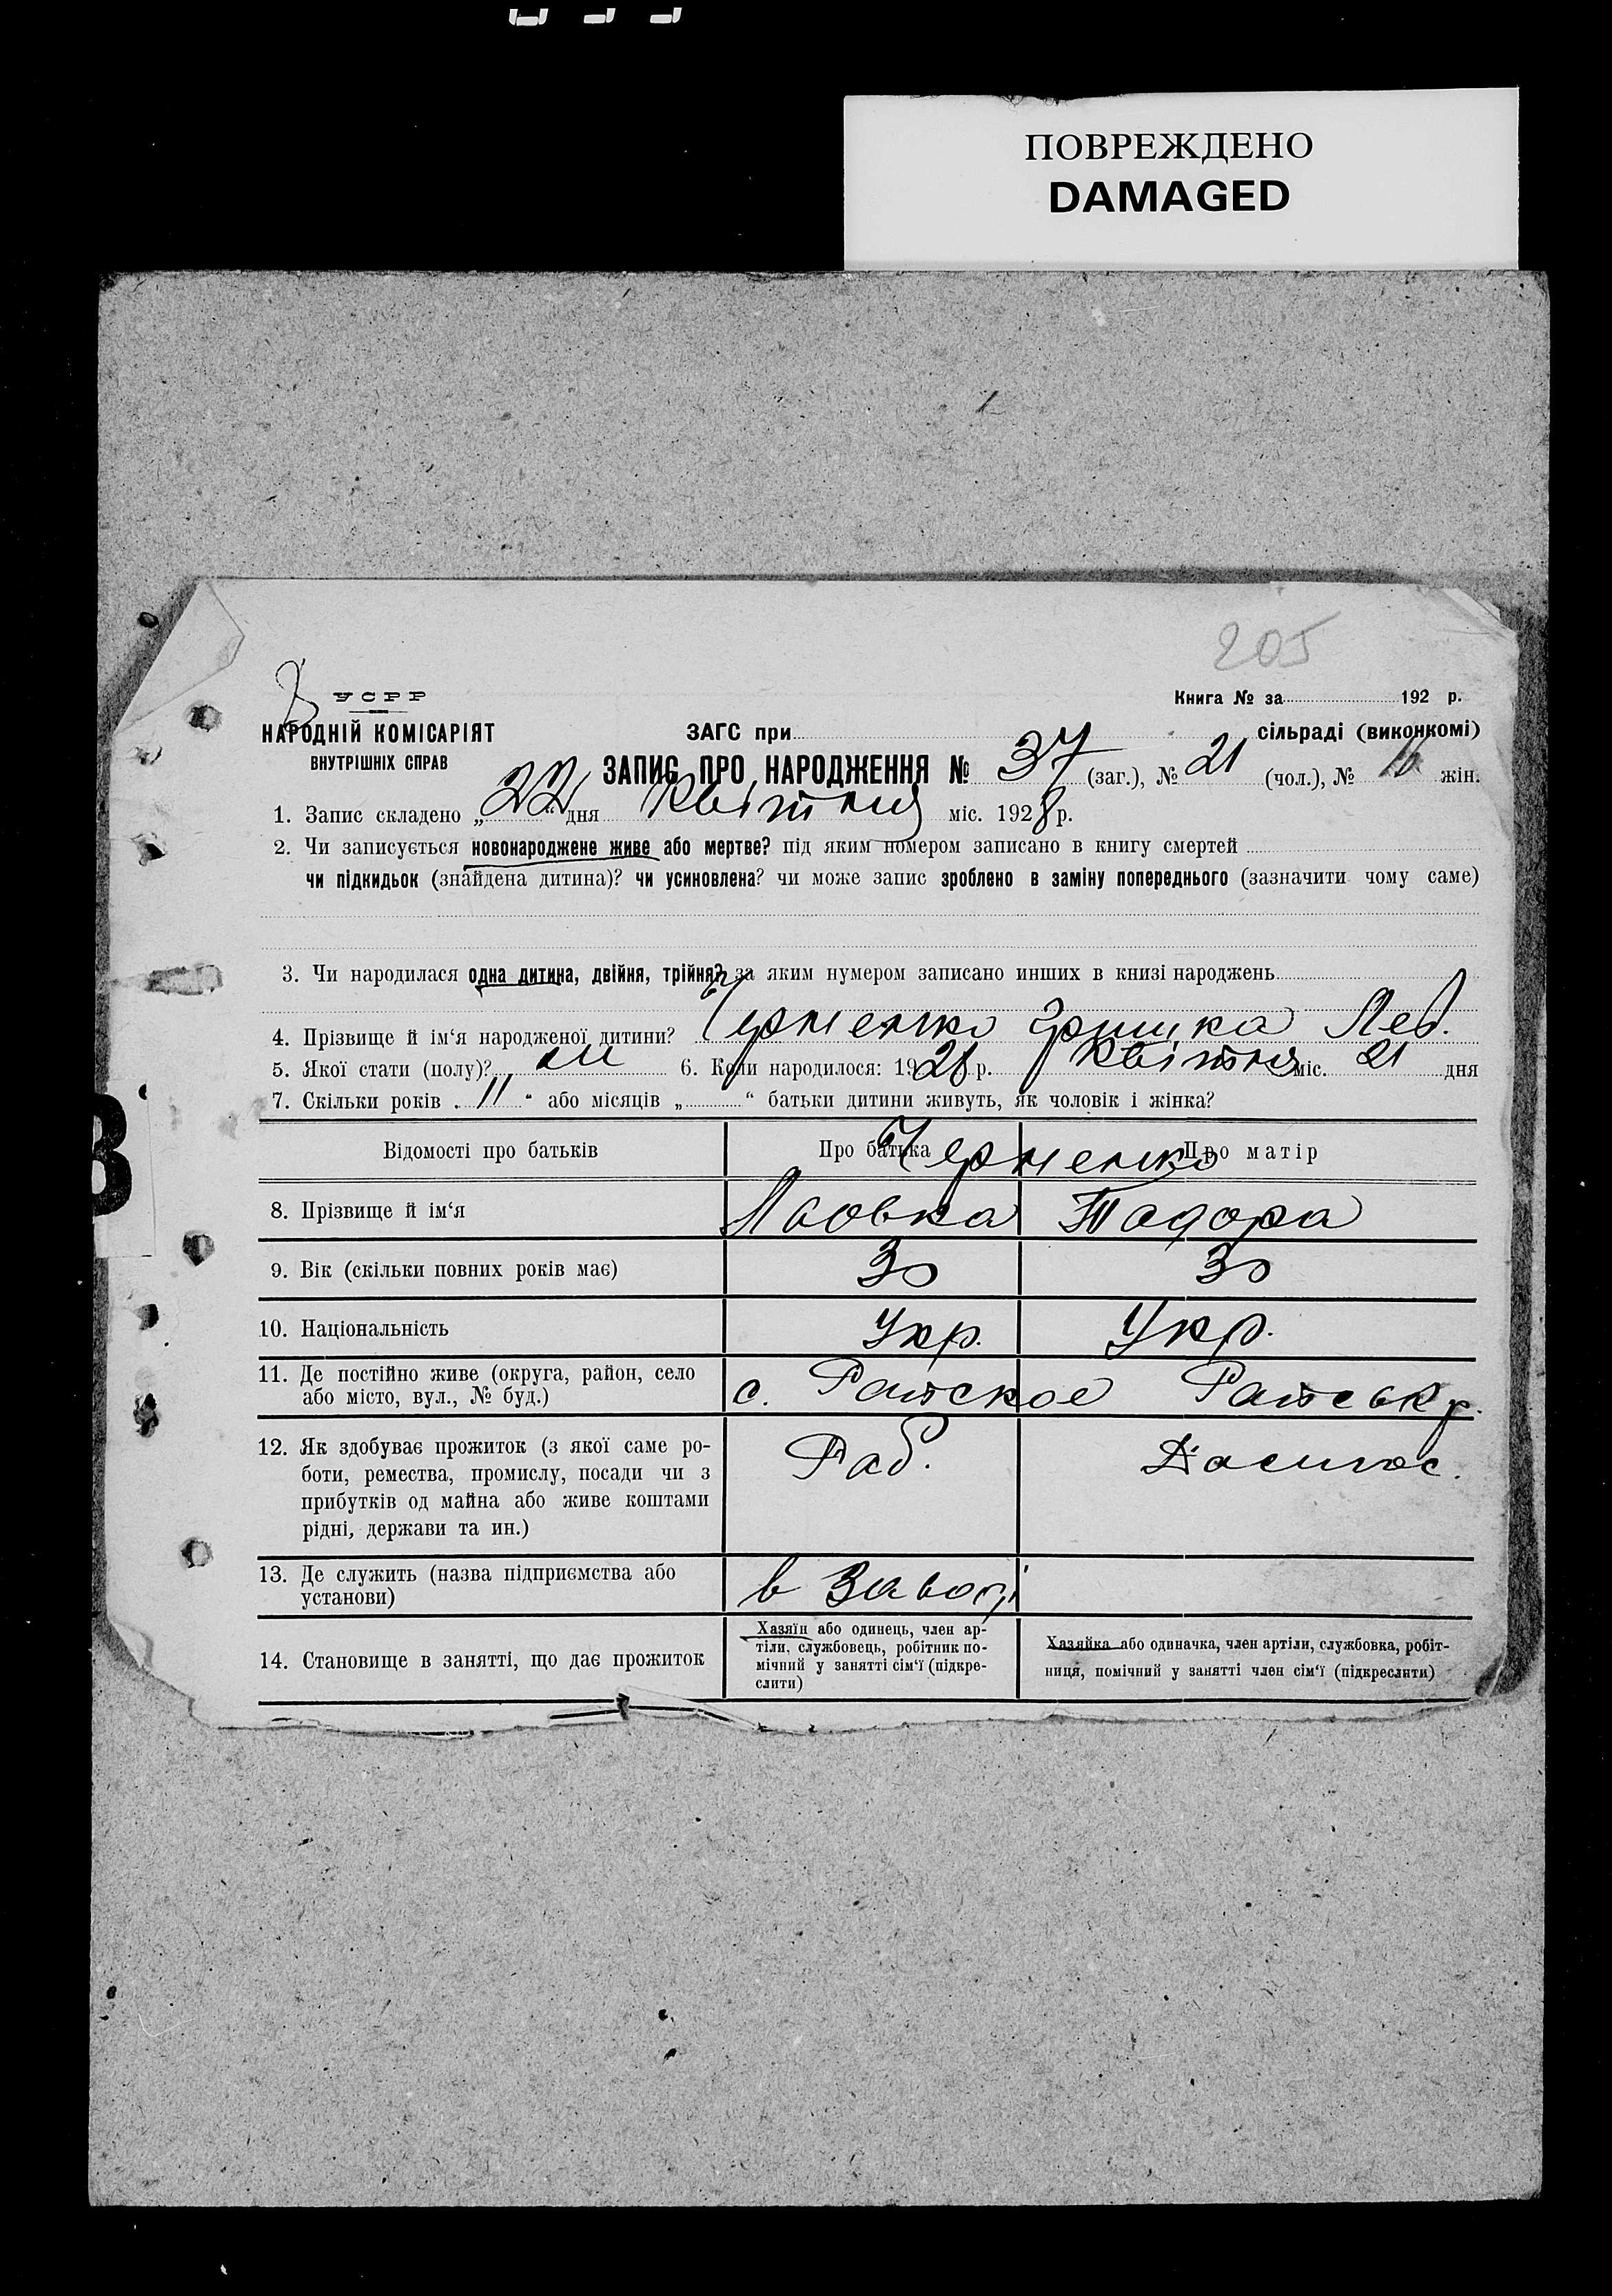 ПОВРЕЖДЕНО
DAMAGED
205
УСРР
Книга № за 192 р.
НАРОДНІЙ КОМІСАРІЯТ
ВНУТРІШНІХ СПРАВ
ЗАГС при сільраді (виконкомі)
ЗАПИС ПРО НАРОДЖЕННЯ № 37 (заг.), № 21 (чол.), № 16 жін.
1. Запис складено „22“ дня Квітня міс. 1928 р.
2. Чи записується новонароджене живе або мертве? під яким номером записано в книгу смертей
чи підкидьок (знайдена дитина)? чи усиновлена? чи може запис зроблено в заміну попереднього (зазначити чому саме)
3. Чи народилася одна дитина, двійня, трійня? за яким нумером записано инших в книзі народжень
4. Прізвище й ім‘я народженої дитини? Черненко Гришка
5. Якої стати (полу)? 6. Коли народилося: 1928 р. Квітня міс. 21 дня
7. Скільки років „11“ або місяців „ “ батьки дитини живуть, як чоловік і жінка?
Відомості про батьків Про батька Про матір
Черненко
8. Прізвище й ім‘я Тадора
9. Вік (скільки повних років має) 30 30
10. Національність Укр. Укр.
11. Де постійно живе (округа, район, село
або місто, вул., № буд.)
с. Ратское Ратськ р.
12. Як здобуває прожиток (з якої саме ро-
боти, ремества, промислу, посади чи з
прибутків од майна або живе коштами
рідні, держави та ин.)
Раб.
13. Де служить (назва підприємства або
установи)
в Заводі
14. Становище в занятті, що дає прожиток
Хазяїн або одинець, член ар-
тіли, службовець, робітник по-
мічний у занятті сім‘ї (підкре-
слити)
Хазяйка або одиначка, член артіли, службовка, робіт-
ниця, помічний у занятті член сім‘ї (підкреслити)